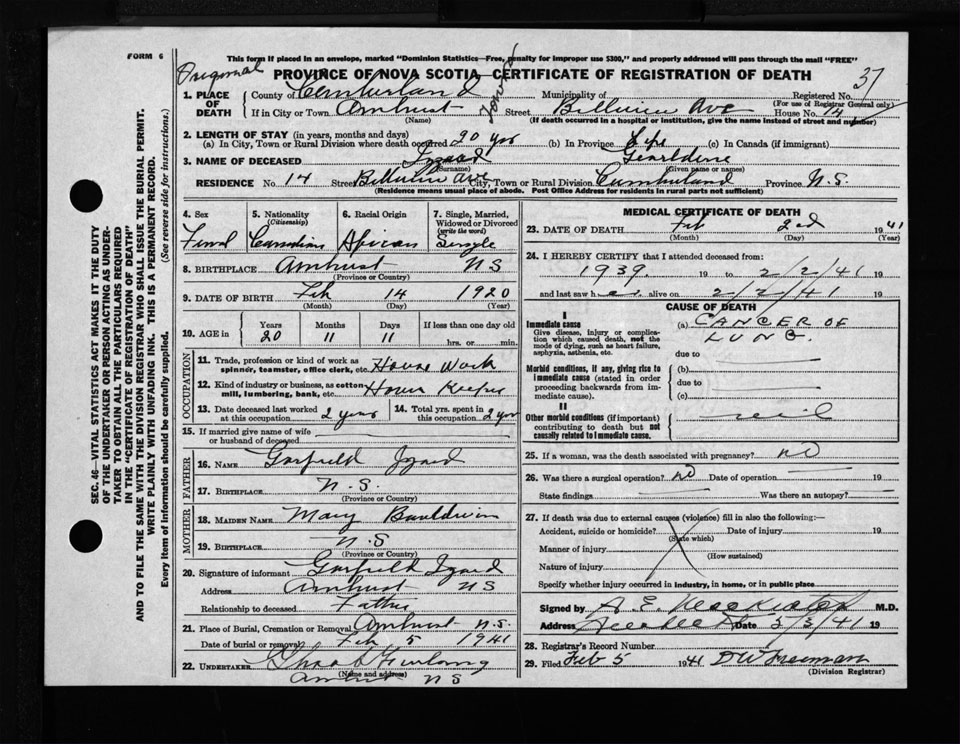 FORM 6
This form if placed in an envelope, marked "Dominion Statistics—Free, penalty for improper use $300," and properly addressed will pass through the mail "FREE"
Original
PROVINCE OF NOVA SCOTIA—CERTIFICATE OF REGISTRATION OF DEATH
37
1. PLACE OF DEATH
County of Cumberland Municipality of Registered No.
(For use of Registrar General only)
If in City or Town Amherst Street House No. 14
(Name) (If death occurred in a hospital or institution, give the name instead of street and number)
2. LENGTH OF STAY (in years, months and days)
(a) In City, Town or Rural Division where death occurred 20 yrs (b) In Province Life (c) In Canada (if immigrant)
3. NAME OF DECEASED Izzard
(Surname) (Given name or names)
RESIDENCE No. 14 Street Ave City, Town or Rural Division Cumberland Province N.S.
(Residence means usual place of abode. Post Office Address for residents in rural parts not sufficient)
4. Sex 5. Nationality (Citizenship) 6. Racial Origin 7. Single, Married, Widowed or Divorced (write the word)
Femal Canadian African Single
8. BIRTHPLACE Amherst NS
(Province or Country)
9. DATE OF BIRTH Feb 14 1920
(Month) (Day) (Year)
10. AGE in Years Months Days If less than one day old
20 11 11 hrs. or min.
OCCUPATION
11. Trade, profession or kind of work as spinner, teamster, office clerk, etc. House Work
12. Kind of industry or business, as cotton mill, lumbering, bank, etc. House Keeper
13. Date deceased last worked at this occupation 2 years 14. Total yrs. spent in this occupation 2 yrs
15. If married give name of wife or husband of deceased
FATHER
16. NAME Garfield Izzard
17. BIRTHPLACE N.S.
(Province or Country)
MOTHER
18. MAIDEN NAME Mary
19. BIRTHPLACE N.S
(Province or Country)
20. Signature of informant Garfield Izzard
Address Amherst NS
Relationship to deceased Father
21. Place of Burial, Cremation or Removal Amherst N.S.
Date of burial or removal Feb 5 1941
22. UNDERTAKER Furlong
(Name and address)
Amherst NS
MEDICAL CERTIFICATE OF DEATH
23. DATE OF DEATH Feb 2nd 1941
(Month) (Day) (Year)
24. I HEREBY CERTIFY that I attended deceased from:
1939. 19 to 2/2/41 19
and last saw h er alive on 2/2/41 19
CAUSE OF DEATH
I
Immediate cause
Give disease, injury or complication which caused death, not the mode of dying, such as heart failure, asphyxia, asthenia, etc.
(a) CANCER OF
LUNG.
due to
Morbid conditions, if any, giving rise to immediate cause (stated in order proceeding backwards from immediate cause).
(b)
due to
(c)
II
Other morbid conditions (if important) contributing to death but not causally related to immediate cause.
nil
25. If a woman, was the death associated with pregnancy? NO
26. Was there a surgical operation? NO Date of operation 19
State findings Was there an autopsy?
27. If death was due to external causes (violence) fill in also the following:—
Accident, suicide or homicide? Date of injury 19
(State which)
Manner of injury
(How sustained)
Nature of injury
Specify whether injury occurred in industry, in home, or in public place
Signed by M.D.
Address Date 3/3/41 19
28. Registrar's Record Number
29. Filed Feb 5 1941 D W Freeman
(Division Registrar)
SEC. 46—VITAL STATISTICS ACT MAKES IT THE DUTY
OF THE UNDERTAKER OR PERSON ACTING AS UNDER-
TAKER TO OBTAIN ALL THE PARTICULARS REQUIRED
IN THE "CERTIFICATE OF REGISTRATION OF DEATH"
AND TO FILE THE SAME WITH THE DIVISION REGISTRAR WHO SHALL ISSUE THE BURIAL PERMIT.
WRITE PLAINLY WITH UNFADING INK. THIS IS A PERMANENT RECORD.
Every item of information should be carefully supplied. (See reverse side for instructions.)